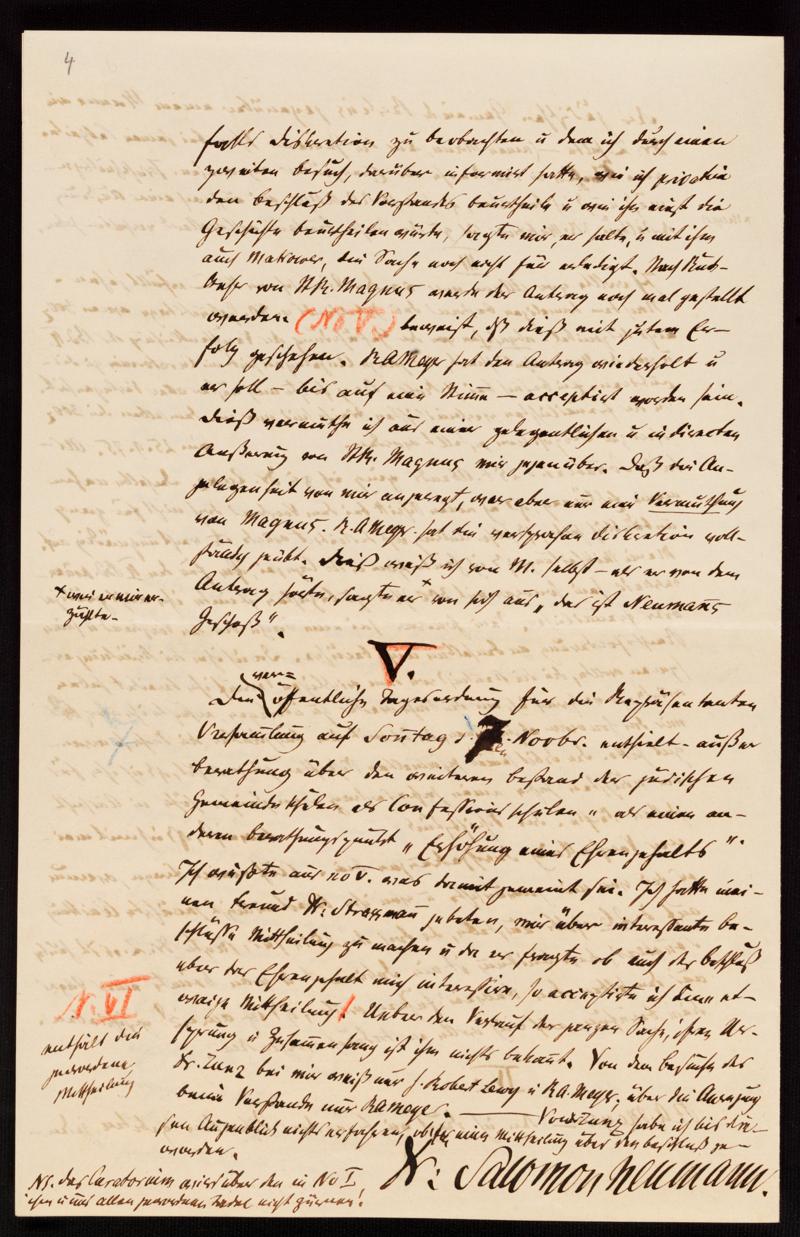 4
falls Diskretion zu beobachten u dem ich durch einen
zweiten Besuch, darüber informirt hatte, wie ich privatim
den Beschluß des Vorstandes beurtheile u wie ihn einst die
Geschichte beurtheilen würde, sagte mir, er halte, u mit ihm
auch Makower, die Sache noch nicht für erledigt. Nach Rück-
kehr von SR. Magnus werde der Antrag noch mal gestellt
werden. (No V.) beweist, dß dieß mit gutem Er-
folg geschehen. RA Meyer hat den Antrag wiederholt u
er soll – bis auf eine Stimme – acceptirt worden sein.
Dieß vermuthe ich aus einer gelegentlichen u indirecten
Äußerung von SR. Magnus mir gegenüber. Daß die An-
gelegenheit von mir angeregt, war aber nur eine Vermuthung
von Magnus. R. A Meyer hat die versprochene Diskretion voll-
ständig geübt. Dieß weiß ich von M. selbst – als er von dem
Antrag hörte, sagte er + von sich aus „das ist Neumanns
Geschoß".
+ wie er mir er-
zählte –
V.
Die ver=
öffentlichte Tagesordnung für die Repräsentanten
Versammlung auf Sonntag d. 7. Novbr. enthielt – außer
Berathung über den weiteren Bestand der jüdischen
Gemeindeschulen als Confessionsschulen „ als einen an-
deren Berathungspunkt „Erhöhung eines Ehrengehalts".
Ich wußte aus no V. was damit gemeint sei. Ich hatte mei-
nen Freund Dr. Strassmann gebeten, mir über interessante Be-
schlüsse Mittheilung zu machen u da er fragte ob auch der Beschluß
über das Ehrengehalt mich interessire, so acceptirte ich eine et-
waige Mittheilung! Ueber den Verlauf der ganzen Sache, ihren Ur-
sprung u Zusammenhang ist ihm nichts bekannt. Von dem Besuche des
Dr. Zunz bei mir weiß nur H. Robert Lewy u RA. Meyer, über die Anregung
beim Vorstande nur RA Meyer. — Von Zunz habe ich bis die-
sen Augenblick nichts erfahren, ob ihm eine Mittheilung über den Beschluß ge-
worden.
N. VI
enthält die
gewordene
Mittheilung
Dr: Salomon Neumann.
NS. Das Curatorium wird über den in No I,
ihm u uns allen gewordenen Tadel nicht zürnen!